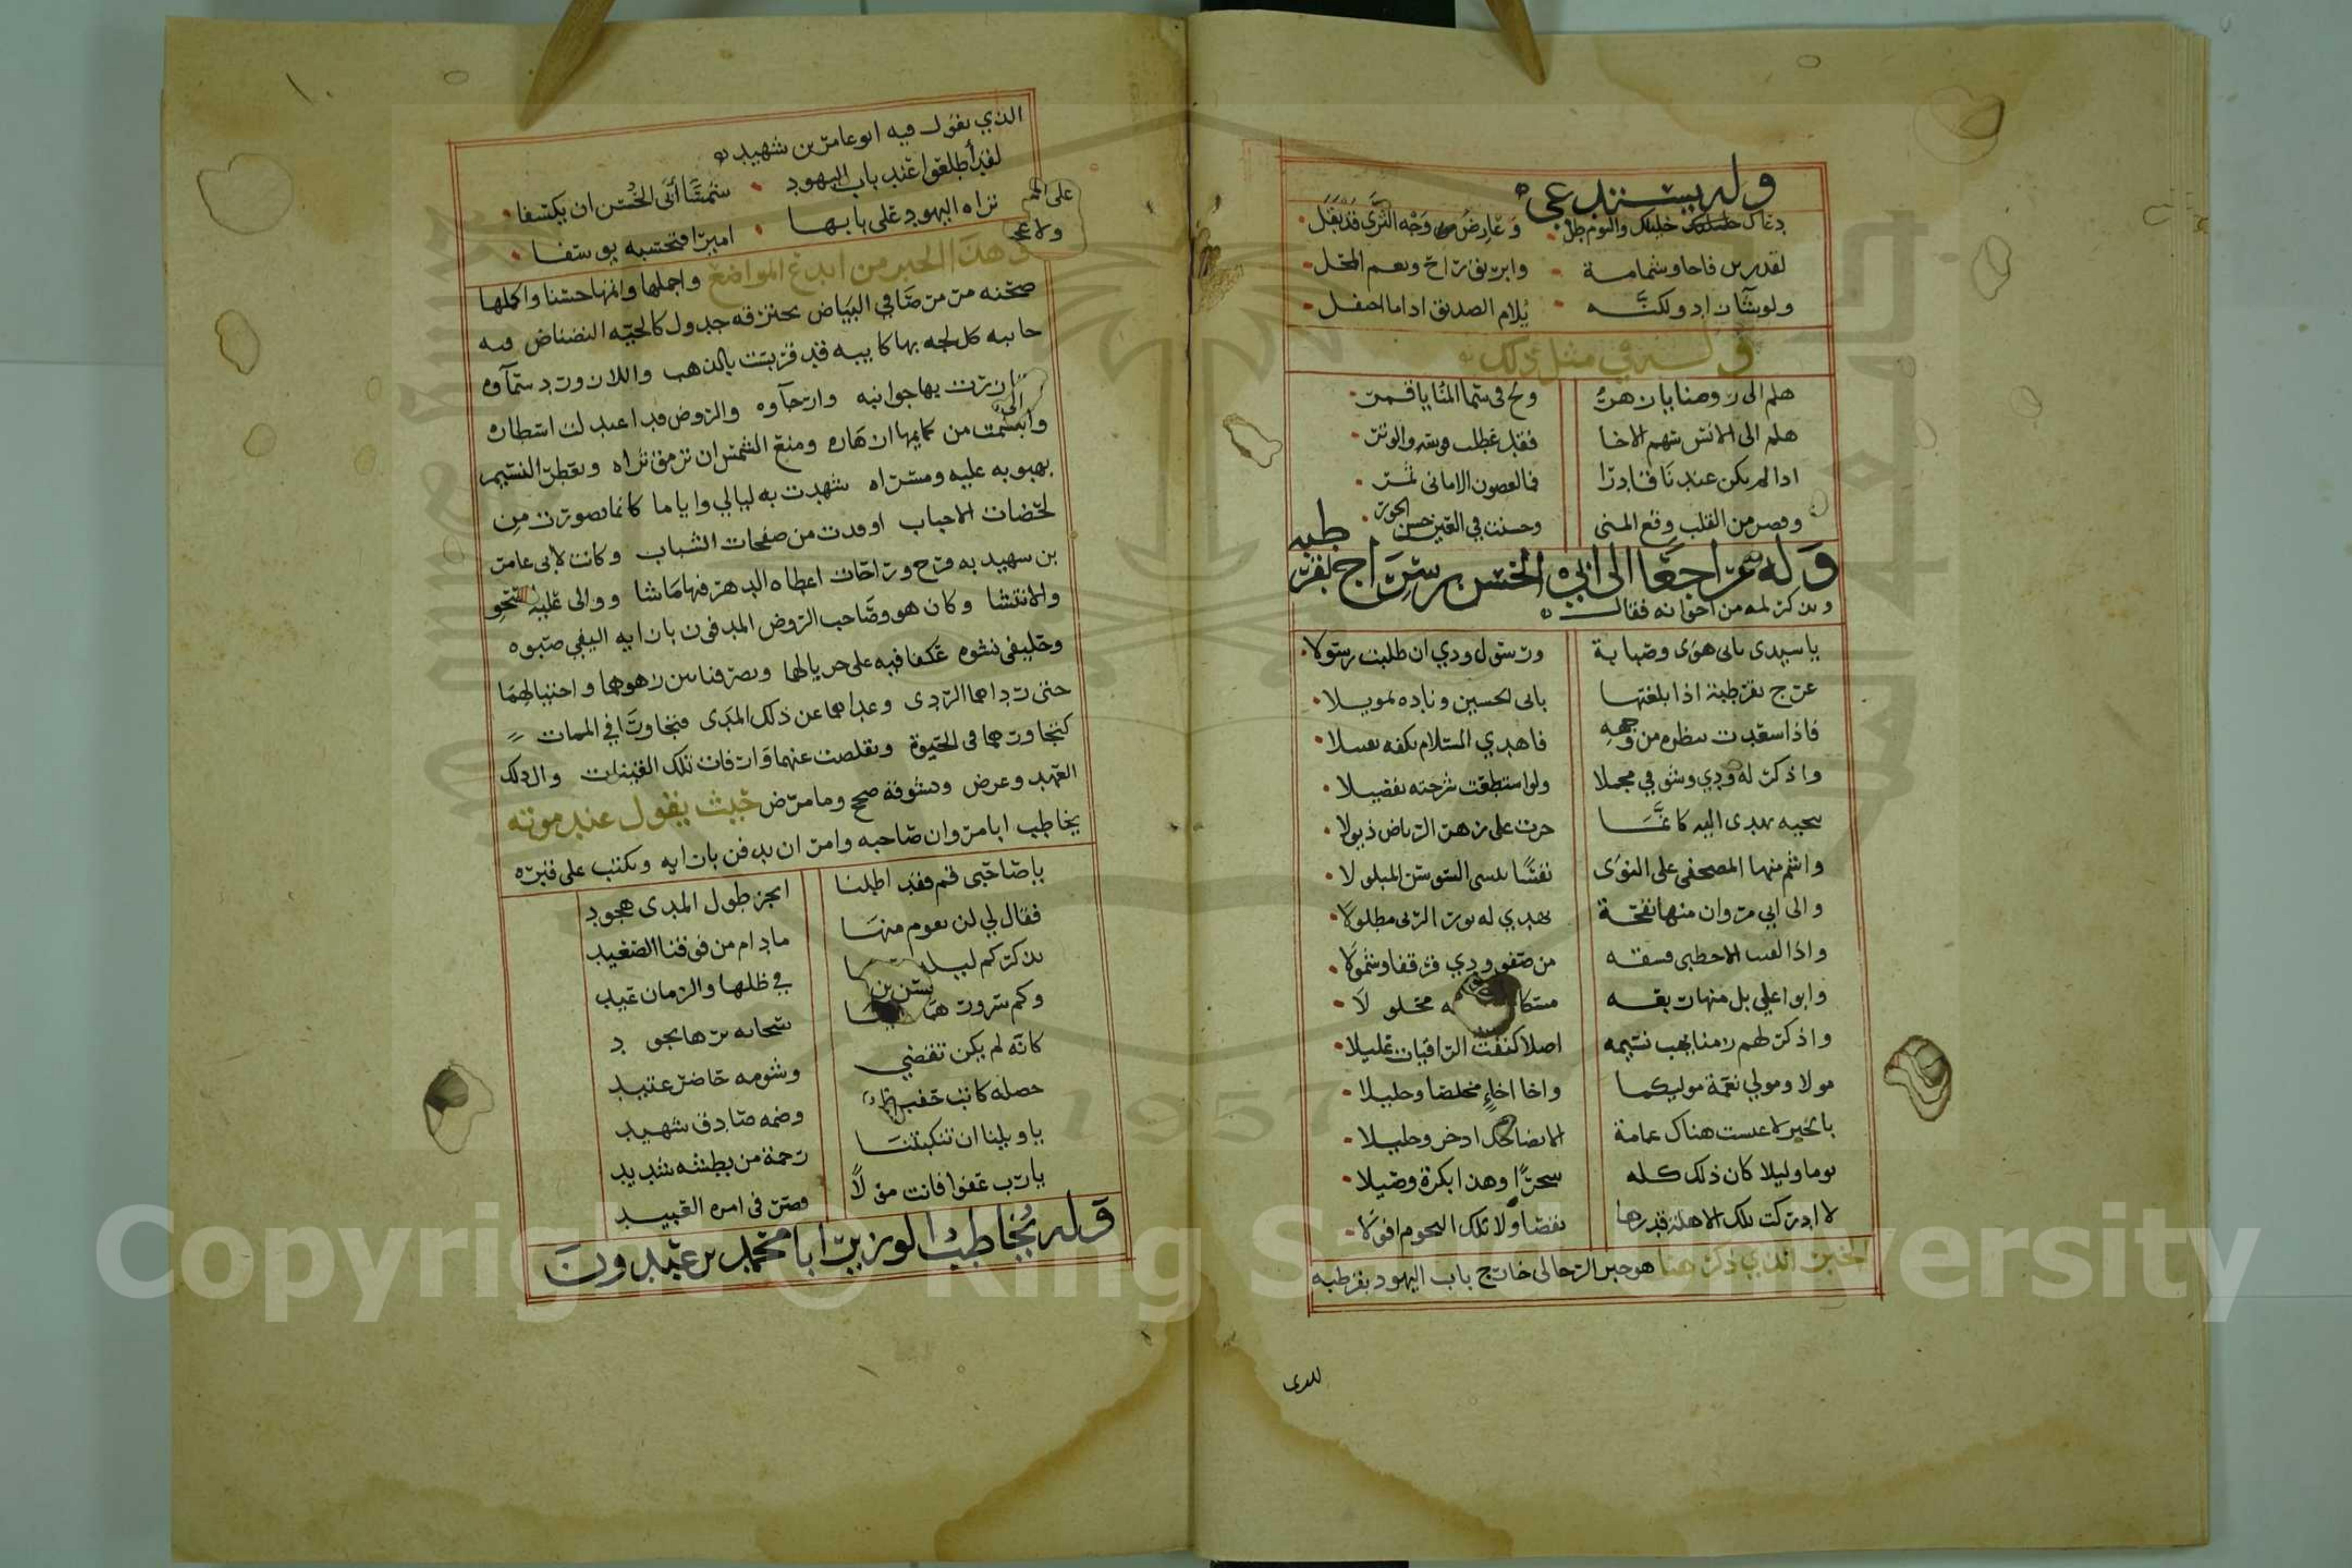 وله يستدعي
دعاك خليلك واليوم طل • وعارض وجه الثرى قد بقل
لقدرين فاحا وشمامة • وابريق راح ونعم المحل
ولو شآ زاد ولكنه • يلام الصديق اذا ما احتفل
وله في مثل ذلك
هلم الى روضنا يا زهر ولح في سما المنا يا قمر
هلم الى الانس سهم الاخا فقد عطلت قوسه والوتر
اذا لم تكن عندنا حاضرا فما لغصون الاماني ثمر
وقعت من القلب وقع المنى وحسنت في العين حسن الحور
وله مراجعا الى ابي الحسن بن سراج بقرطبه
ويذكر لمه من اخوانه فقال
يا سيدي وابي هوى وصبابة ورسول ودي ان طلبت رسولا
عرج بقرطبة اذا بلغتها بابي الحسين وناده تمويلا
فاذا سعدت بنظره من وجهه فاهدي السلام لكفه تقبيلا
واذكر له ودي وشوقي مجملا ولو استطعت شرحته تفصيلا
بتحيه تهدى اليه كانما جرت على زهر الرياض ذيولا
واشم منها المصحفي على النوى نفسا ينسي السوسن المبلولا
والى ابي مروان منها نفحة تهدي له نور الربى مطلولا
واذا لقيت الاحطبي فسقه من صفو ودي قرقفا وشمولا
وابو اعلي بل منها ربقه مسكا محلولا
واذكر لهم زمنا يهب نسيمه اصلا كنفث الراقيات عليلا
مولا ومولي نعمة موليكما واخا اخاء مخلصا وخليلا
بالخير لا عبست هناك غمامة الا تضاحك اذخر وجليلا
يوما وليلا كان ذلك كله سحرا وهذا بكرة واصيلا
لا ادركت تلك الاهلة قدرها نقصا ولا تلك النجوم افولا
الخير الذي ذكر هنا هو حير الزجالي خارج باب اليهود بقرطبه
للدى
١٠
الذي يقول فيه ابو عامر بن شهيد
لقد أطلعوا عند باب اليهود • شمسا أبى الحسن ان يكسفا
تراه اليهود على بابها • اميرا فتحسبه يوسفا
وهذا الحير من ابدع المواضع واجملها واتمها حسنا واكملها
صحنه مرمر صافي البياض يخترقه جدول كالحيه النضناض فيه
جابيه كل لجه بها كابيه قد قربست بالذهب واللازورد سمآوه
وتازرت بها جوانبه وارجآوه والروض قد اعتدلت اسطاره
وابتسمت من كمايمها ازهاره ومنع الشمس ان ترمق ثراه وتعطر النسيم
بهبوبه عليه ومسراه شهدت به ليالي واياما كانما تصورت من
لحضات الاحباب او قدت من صفحات الشباب وكانت لابي عامر
بن شهيد به فرح وراحات اعطاه الدهر فيها ماشا ووالى عليه الصحو
والانتشا وكان هو وصاحب الروض المدفون بازايه اليفي صبوه
وحليفي نشوه عكفا فيه على جريالهما وتصرفا بين زهوهما واختيالهما
حتى رداهما الردى وعداهما عن ذلك المدى فتجاورا في الممات
كتجاورهما في الحيوة وتقلصت عنهما وارفات تلك الفينات والى ذلك
العهد وعرض وبشوقه صح وما مرض حيث يقول عند موته
يخاطب ابا مروان صاحبه وامر ان يدفن بازايه ويكتب على قبره
يا صاحبي قم فقد اطلنا انحن طول المدى هجود
فقال لي لن نقوم منها ما دام من فوقنا الصعيد
تذكركم ليله في ظلها والزمان عيد
وكم سرور سحابه ثره تجود
كانه لم يكن تقضي وشومه حاضر عتيد
حصله كاتب حفيظ وضمه صادق شهيد
يا ويلنا ان تنكبتنا رحمة من بطشه شديد
يا رب عفوا فانت مولا قصر في امره العبيد
وله يخاطب الوزير ابا محمد بن عبدون